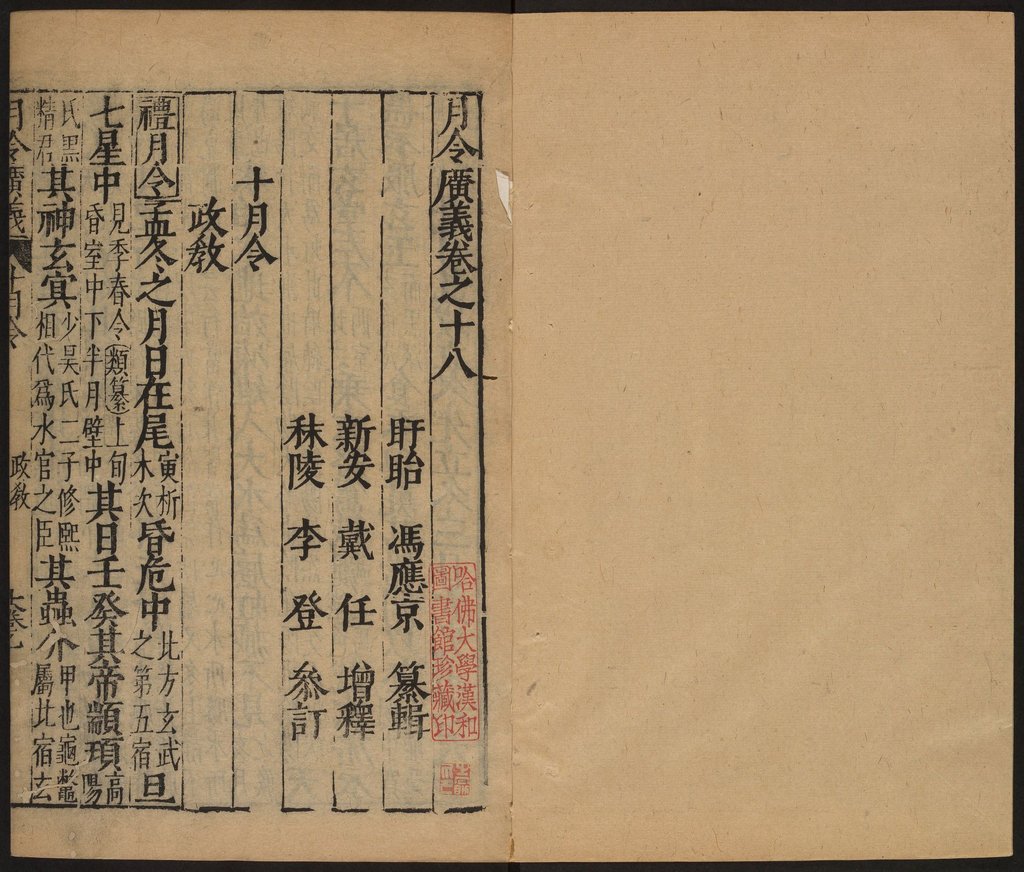 月令廣義卷之十八
哈佛大學漢和
圖書館珍藏印
盱眙 馮應京 纂輯
新安 戴任 增釋
秣陵 李登 叅訂
十月令
政教
禮月令孟冬之月日在尾寅析木次昏危中此方玄武之第五宿旦
七星中見季春令類纂上旬昏室中下半月壁中其日壬癸其帝顓頊高陽
氏黑精君其神玄冥少昊氏二子修熙相代爲水官之臣其蟲介甲也龜鱉屬北宿玄
月令廣義 十月令 政教